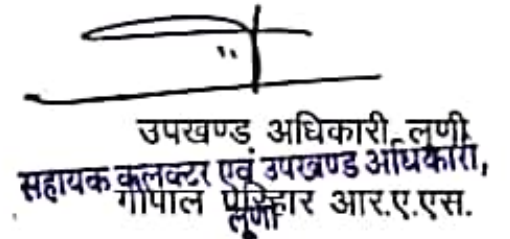 उपखण्ड अधिकारी लूणी
सहायक कलक्टर एवं उपखण्ड अधिकारी,
गोपाल परिहार आर.ए.एस.
लूणी